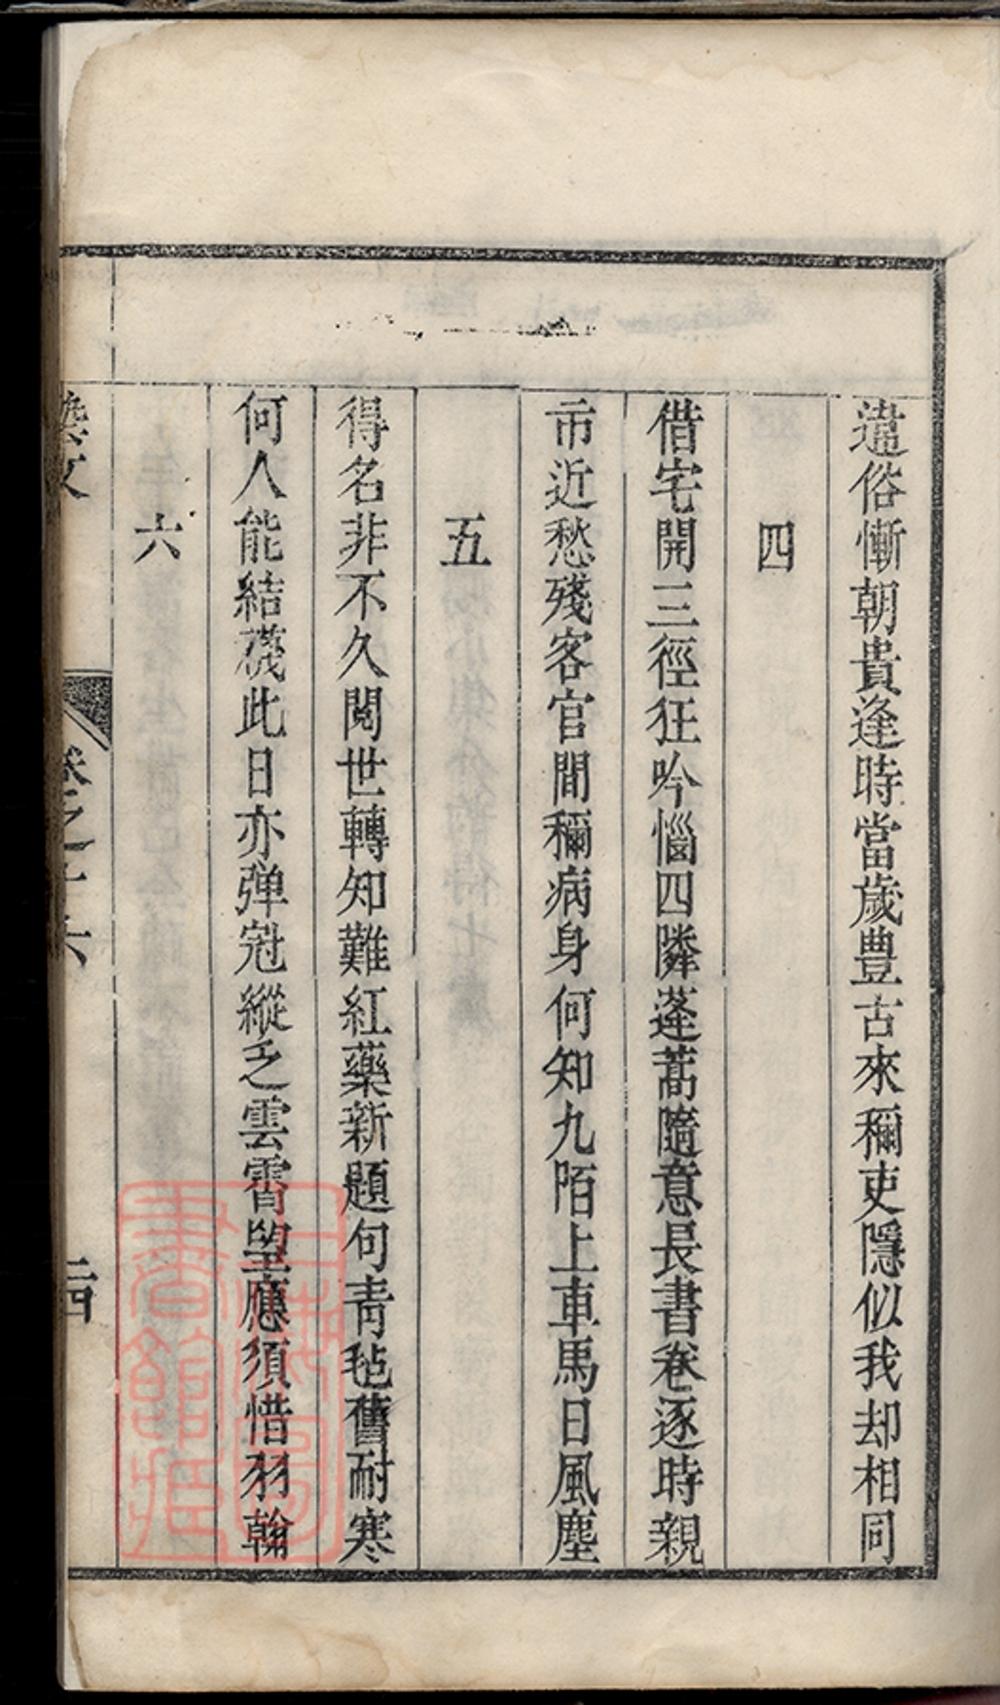 違俗慚朝貴逢時當歲豊古來稱吏隱似我却相同
四
借宅開三徑狂吟惱四隣蓬蒿隨意長書卷逐時親
市近愁殘客官閒稱病身何知九陌上車馬日風塵
五
得名非不久閱世轉知難紅藥新題句青毡舊耐寒
何人能結襪此日亦弹冠縱之雲霄望應須惜羽翰
六
卷之十六